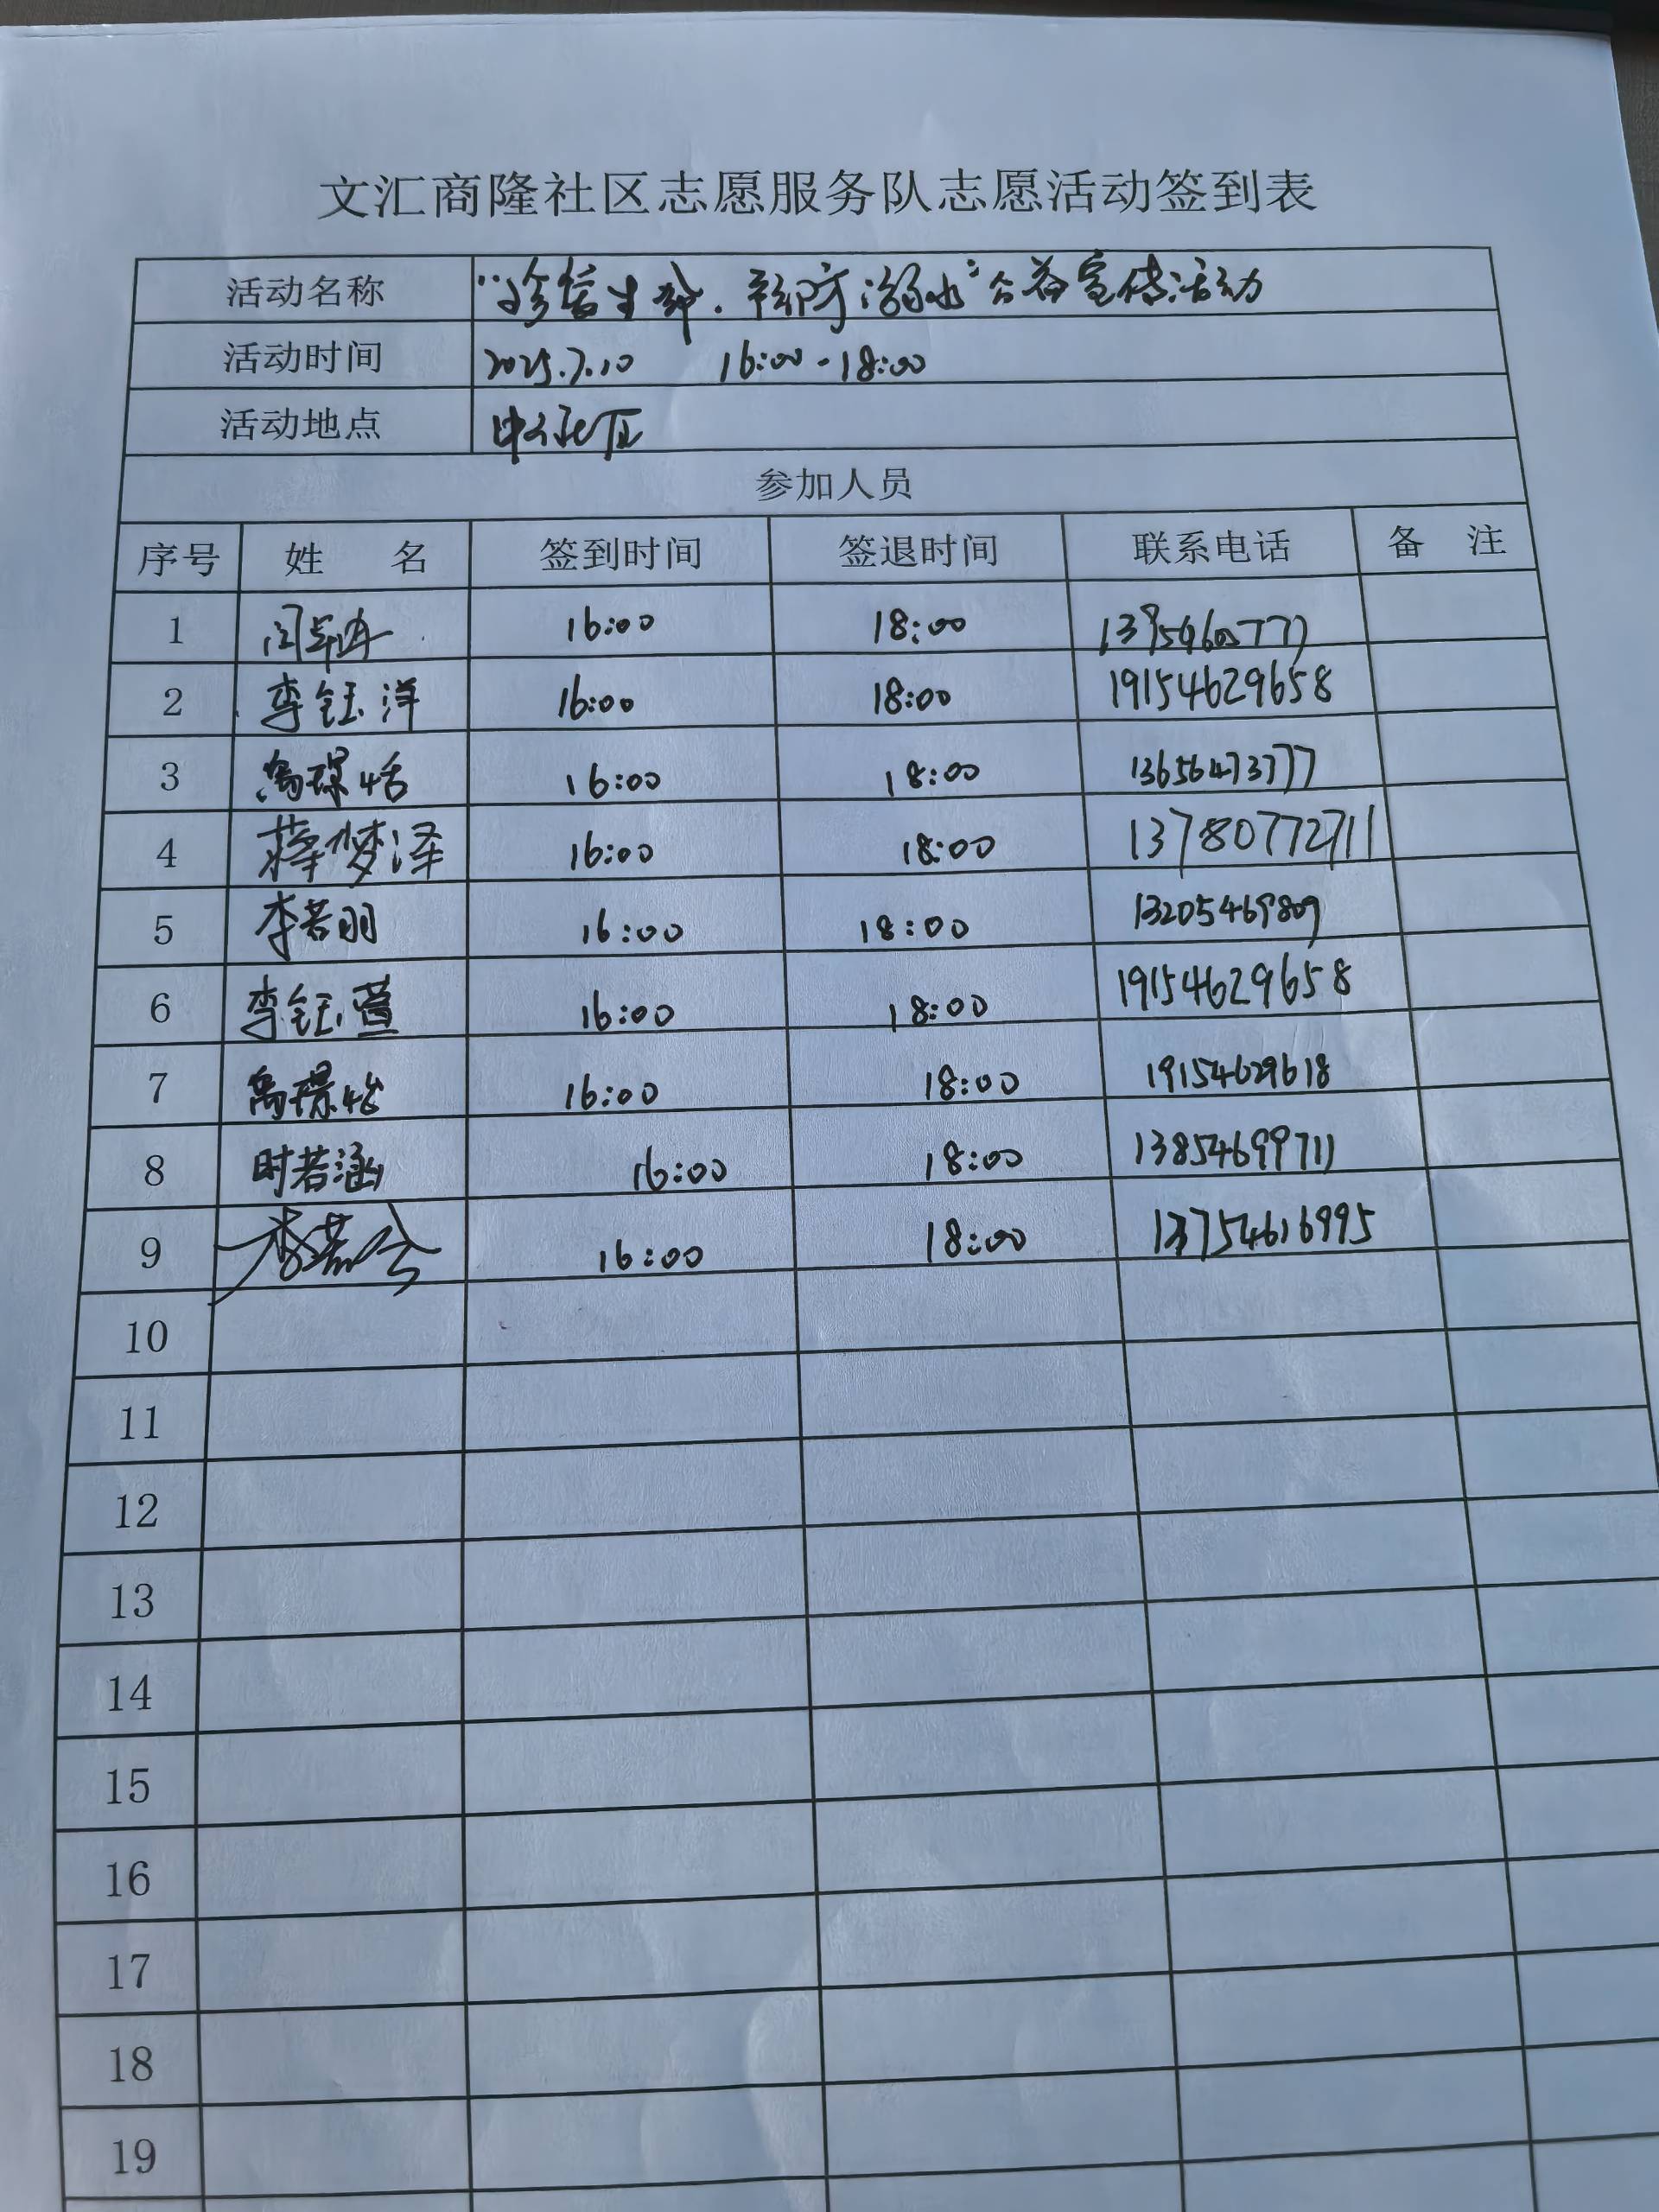 文汇商隆社区志愿服务队志愿活动签到表
活动名称 “珍惜生命.预防溺水”公益宣传活动
活动时间 2025.7.10 16:00-18:00
活动地点 社区
参加人员
序号 姓 名 签到时间 签退时间 联系电话 备 注
1 16:00 18:00
2 李钰洋 16:00 18:00 19154629658
3 16:00 18:00 13656473777
4 蒋梦泽 16:00 18:00 13780772711
5 李若羽 16:00 18:00 13205469809
6 李钰萱 16:00 18:00 19154629658
7 16:00 18:00 19154629618
8 时若涵 16:00 18:00 13854699711
9 16:00 18:00 13754616995
10
11
12
13
14
15
16
17
18
19